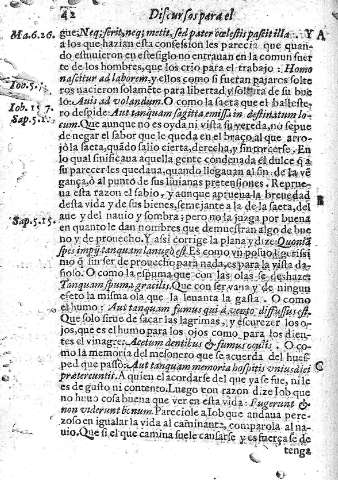 42 Discursos para el
Ma.6.26. gue. Neq; serit, neq; metit, sed pater cœlestis pascit illa. Y A
a los que hazian esta confession les parecia que quan-
do estuuieron en este siglo no entrauan en la comun suer
te de los hombres, que los crio para el trabajo: Homo
Iob. 5. nascitur ad laborem. y ellos como si fueran pajaros solte
ros nacieron solamēte para libertad, y soltura de su bue
Iob. 15 7. lo: Auis ad volandum. O como la saeta que el balleste,
Sap. 5. ro despide: Aut tanquam sagitta emissa in destinatum lo-
cum. Que aunque no es oyda ni vista su vereda, no se pue
de negar el sabor que le queda en el braço, al que arro-
jò la saeta, quādo salio cierta, derecha, y sin torcerse. En
lo qual sinificaua aquella gente condenada el dulce q̄ a
su parecer les quedaua, quando llegauan al fin de la vē
gança, ò al punto de sus liuianas pretensiones. Reprue
ua esta razon el sabio, y aunque aprueua la breuedad B
desta vida y de sus bienes, semejante a la de la saeta, del
aue y del nauio y sombra; pero no la juzga por buena
en quanto le dan nombres que demuestran algo de bue
Sap. 5. 15. no y de prouecho. Y assi corrige la plana y dize: Quoniā
spes impij tanquam lanugo est. Es como vn pelito ligerissi
mo q̄ sin ser de prouecho para nada, es para la vista da-
ñoso. O como la espuma que con las olas se deshaze
Tanquam spuma gracilis. Que con ser vana y de ningun
efeto la misma ola que la leuanta la gasta. O como
el humo: Aut tanquam fumus qui à vento diffusus est.
Que solo sirue de sacar las lagrimas, y escurezer los o-
jos, que es el humo para los ojos como para los dien-
tes el vinagre: Acetum dentibus & fumus oculis. O co-
mo la memoria del mesonero que se acuerda del hues-
ped que passò: Aut tanquam memoria hospitis vnius diei C
prætereuntis. A quien el acordarse del que ya se fue, ni le
es de gusto ni contento. Luego con razon dize Iob que
no huuo cosa buena que ver en esta vida: Fugerunt &
non viderunt bonum. Pareciole a Iob que andaua pere-
zoso en igualar la vida al caminante, comparola al na-
uio. Que si el que camina suele cansarse y es fuerça se de
tenga